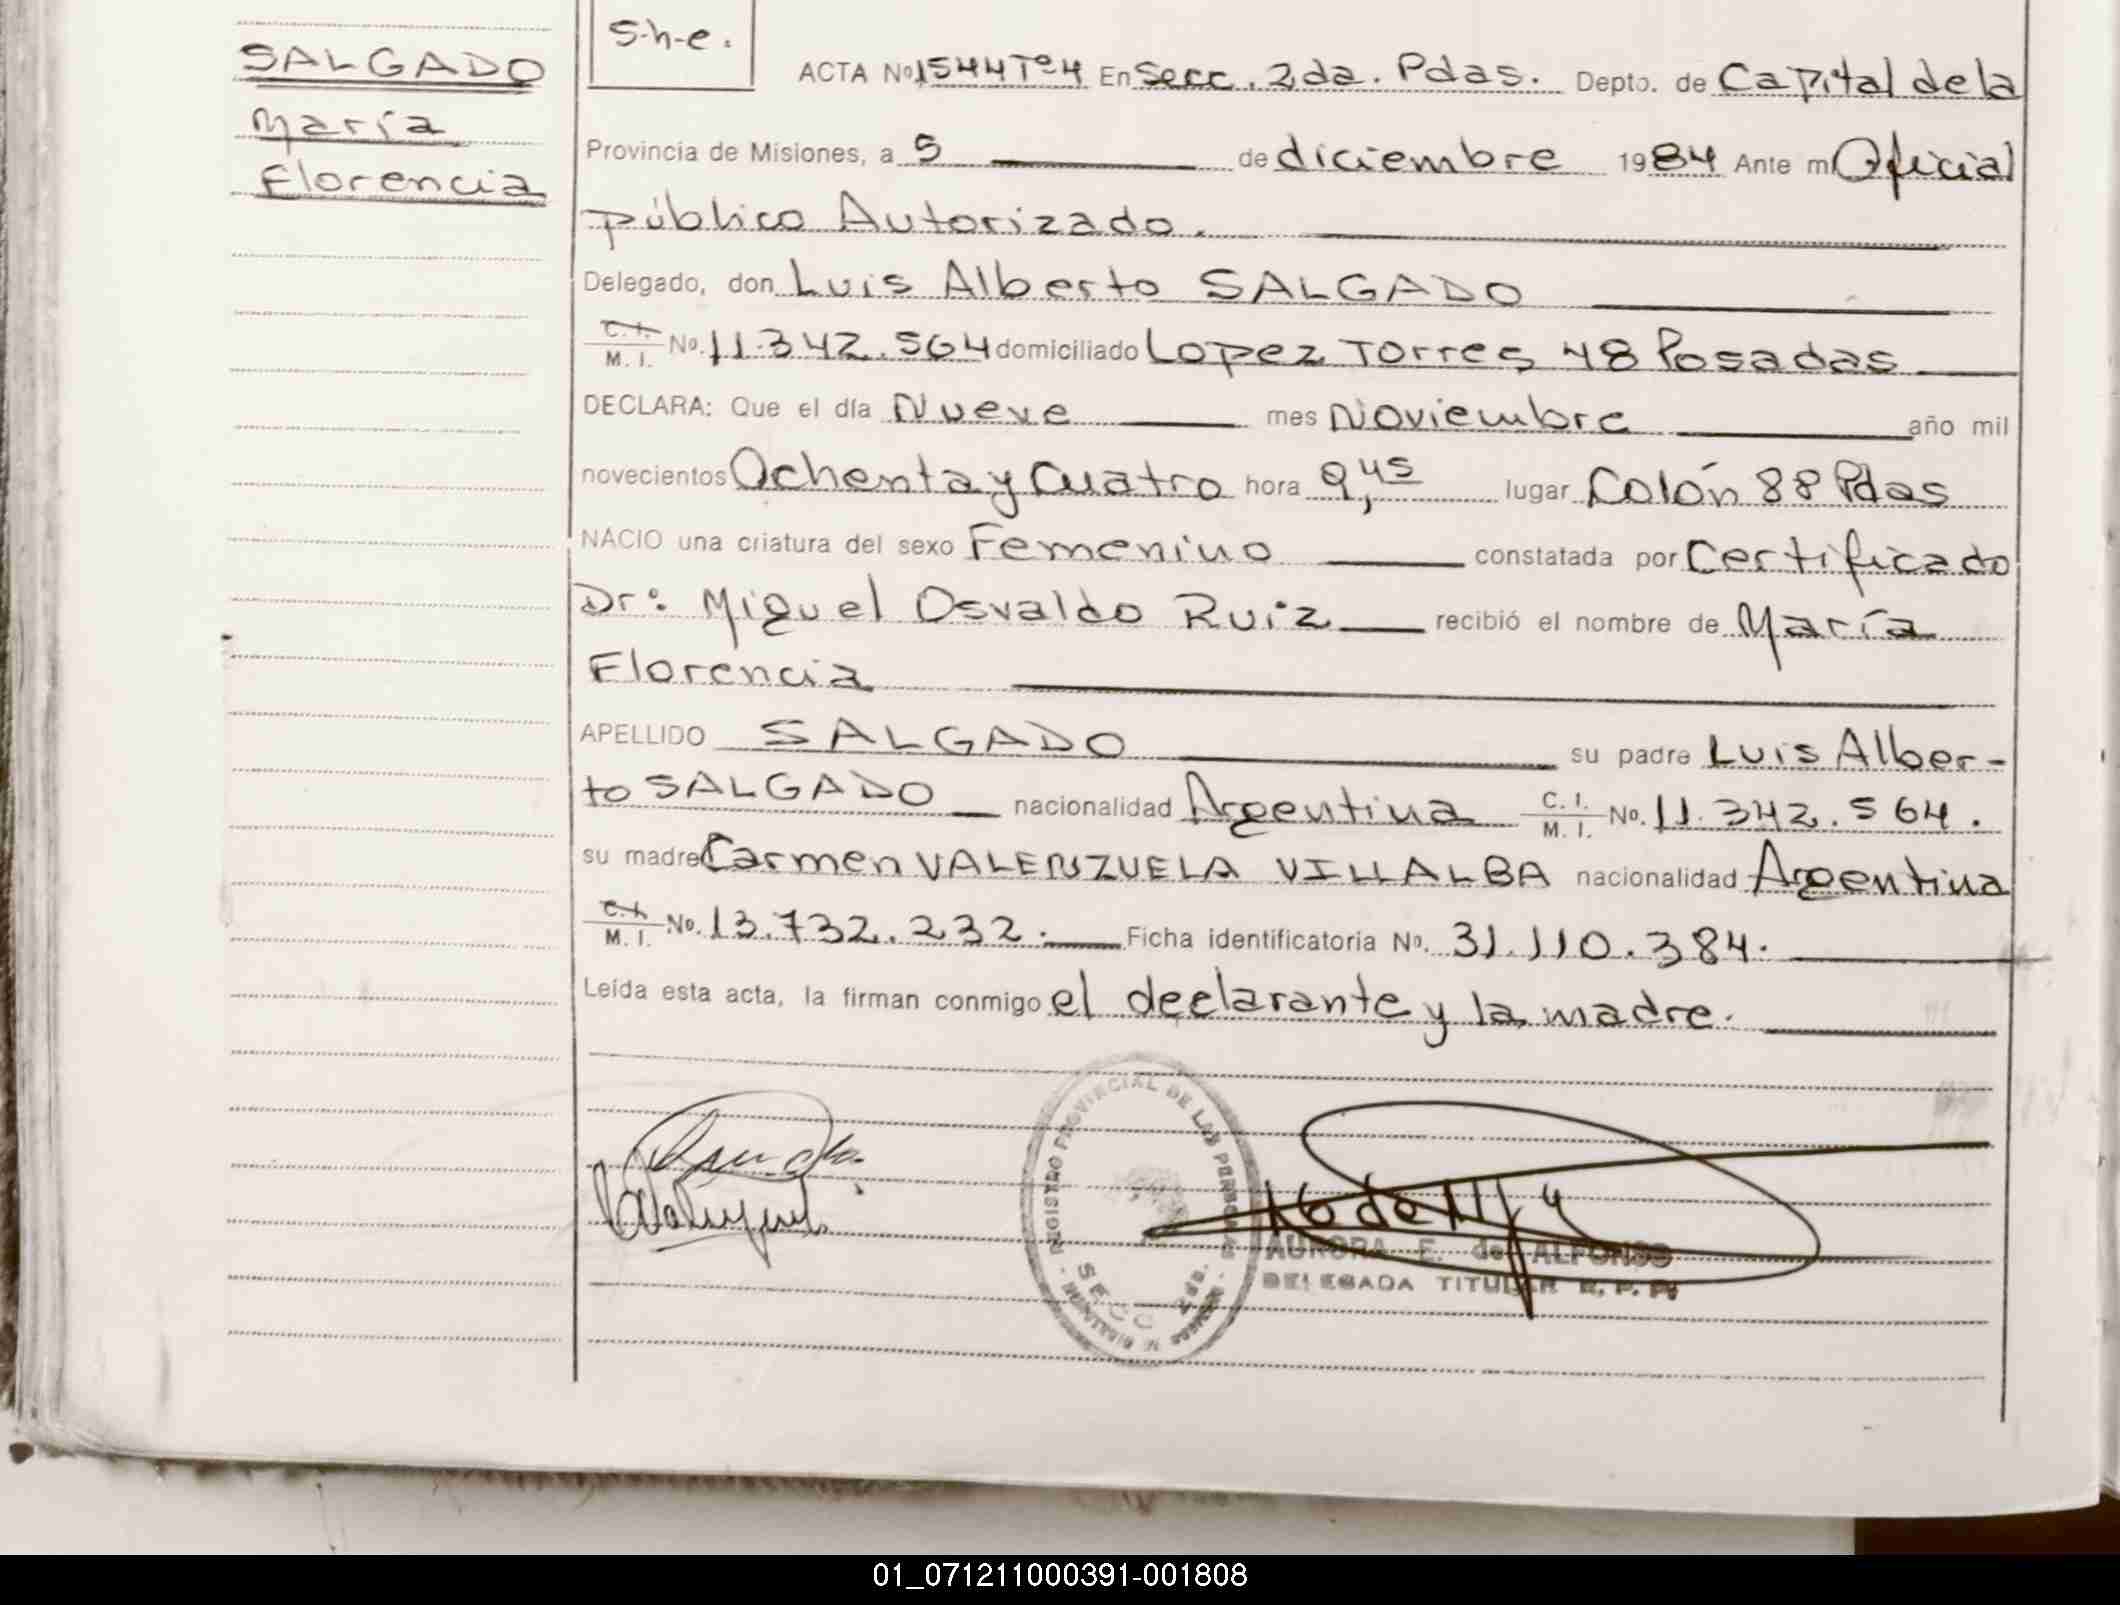 SALGADO
María
Florencia
S-h-e.
ACTA Nº 1544 Tº4 En Secc. 2da. Pdas. Depto. de Capital de la
Provincia de Misiones, a 5 de diciembre 1984 Ante mi Oficial
público Autorizado.
Delegado, don Luis Alberto SALGADO
C. I. / M. I. No. 11.342.564 domiciliado Lopez Torres 48 Posadas
DECLARA: Que el día Nueve mes Noviembre año mil
novecientos Ochenta y Cuatro hora 9,45 lugar Colón 88 Pdas
NACIO una criatura del sexo Femenino constatada por Certificado
Dr: Miguel Osvaldo Ruiz recibió el nombre de María
Florencia
APELLIDO SALGADO su padre Luis Alber-
to SALGADO nacionalidad Argentina C. I. / M. I. No. 11.342.564.
su madre Carmen VALENZUELA VILLALBA nacionalidad Argentina
C. I. / M. I. No. 13.732.232. Ficha identificatoria No. 31.110.384.
Leída esta acta, la firman conmigo el declarante y la madre.
REGISTRO PROVINCIAL DE LAS PERSONAS
SECC 2da.
AURORA E. de ALFONSO
DELEGADA TITULAR R. P. P.
01_071211000391-001808